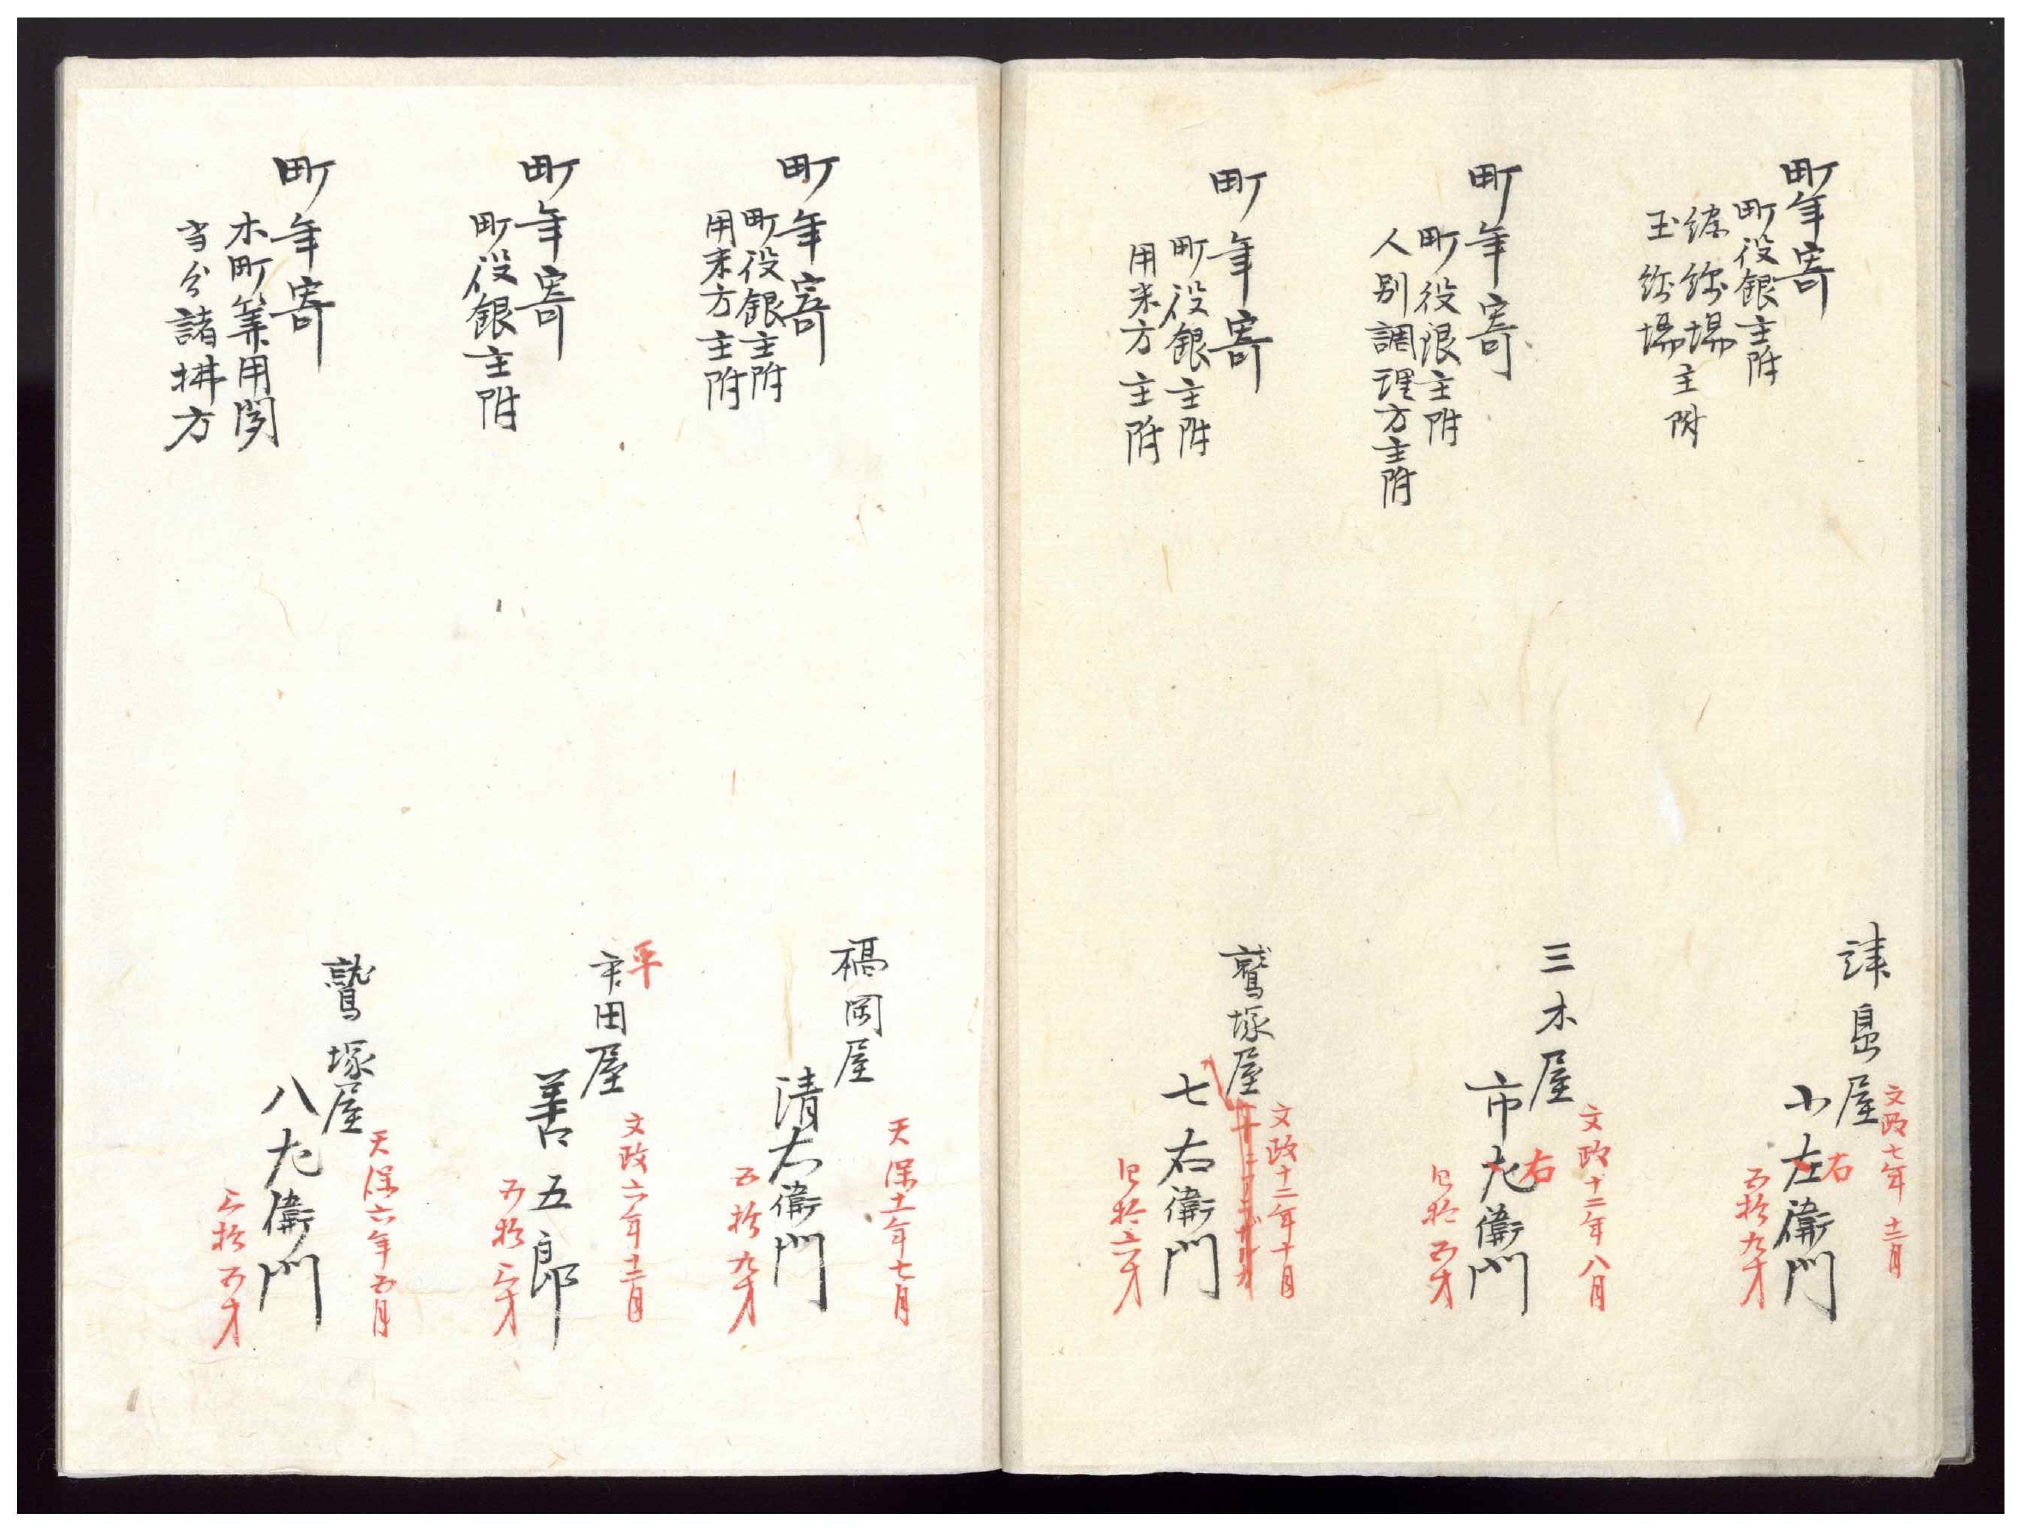 町年寄
町役銀主附
綛場
玉場主附
津島屋
小左衛門
右
文政七年十二月
五拾九才
町年寄
町役銀主附
人別調理方主附
三木屋
市左衛門
右
文政十二年八月
四拾五才
町年寄
町役銀主附
用来方主附
鷲塚屋
七右衛門
文政十二年十月
四拾六才
町年寄
町役銀主附
用来方主附
福岡屋
清右衛門
天保十一年七月
五拾九才
町年寄
町役銀主附
平
田屋
善五郎
文政六年十二月
五拾三才
町年寄
木町算用聞
当分諸払方
鷲塚屋
八左衛門
天保六年五月
三拾五才